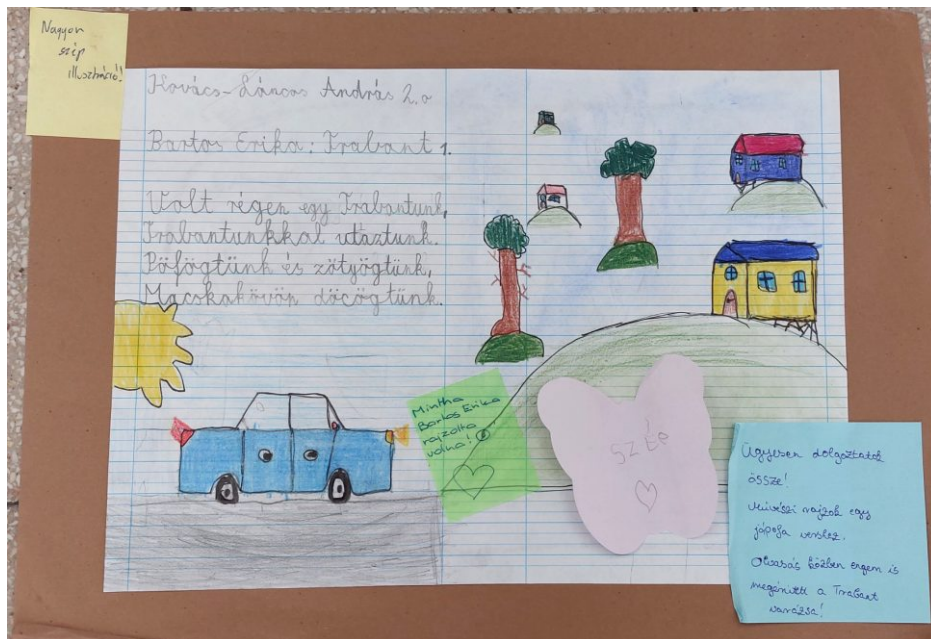 Nagyon
szép
illusztráció!
Kovács-Láncos András 2.a
Bartos Erika: Trabant 1.
Volt régen egy Trabantunk,
Trabantunkkal utaztunk.
Pöfögtünk és zötyögtünk,
Macskakövön döcögtünk.
Mintha
Bartos Erika
rajzolta
volna!
SZÉP
Ügyesen dolgoztatok
össze!
Művészi rajzok egy
jópofa vershez.
Olvasás közben engem is
megérintett a Trabant
varázsa!